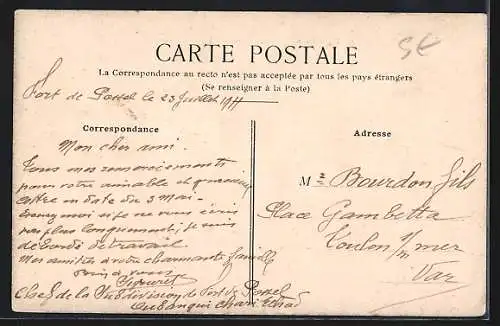 CARTE POSTALE
5€
La Correspondance au recto n'est pas acceptée par tous les pays étrangers
(Se renseigner à la Poste)
Fort de Possel le 23 Juillet 1911
Correspondance
Adresse
Mon cher ami.
Tous mes remerciements
pour votre aimable et gracieuse
lettre en date du 3 Mai.
Excusez moi si je ne vous écris
pas plus longuement; je suis
débordé de travail.
Mes amitiés à votre charmante famille
à vous
Chef de la Subdivision de Fort de Possel
Oubangui Chari Tchad
Mr Bourdon fils
Place Gambetta
Toulon s/mer
Var